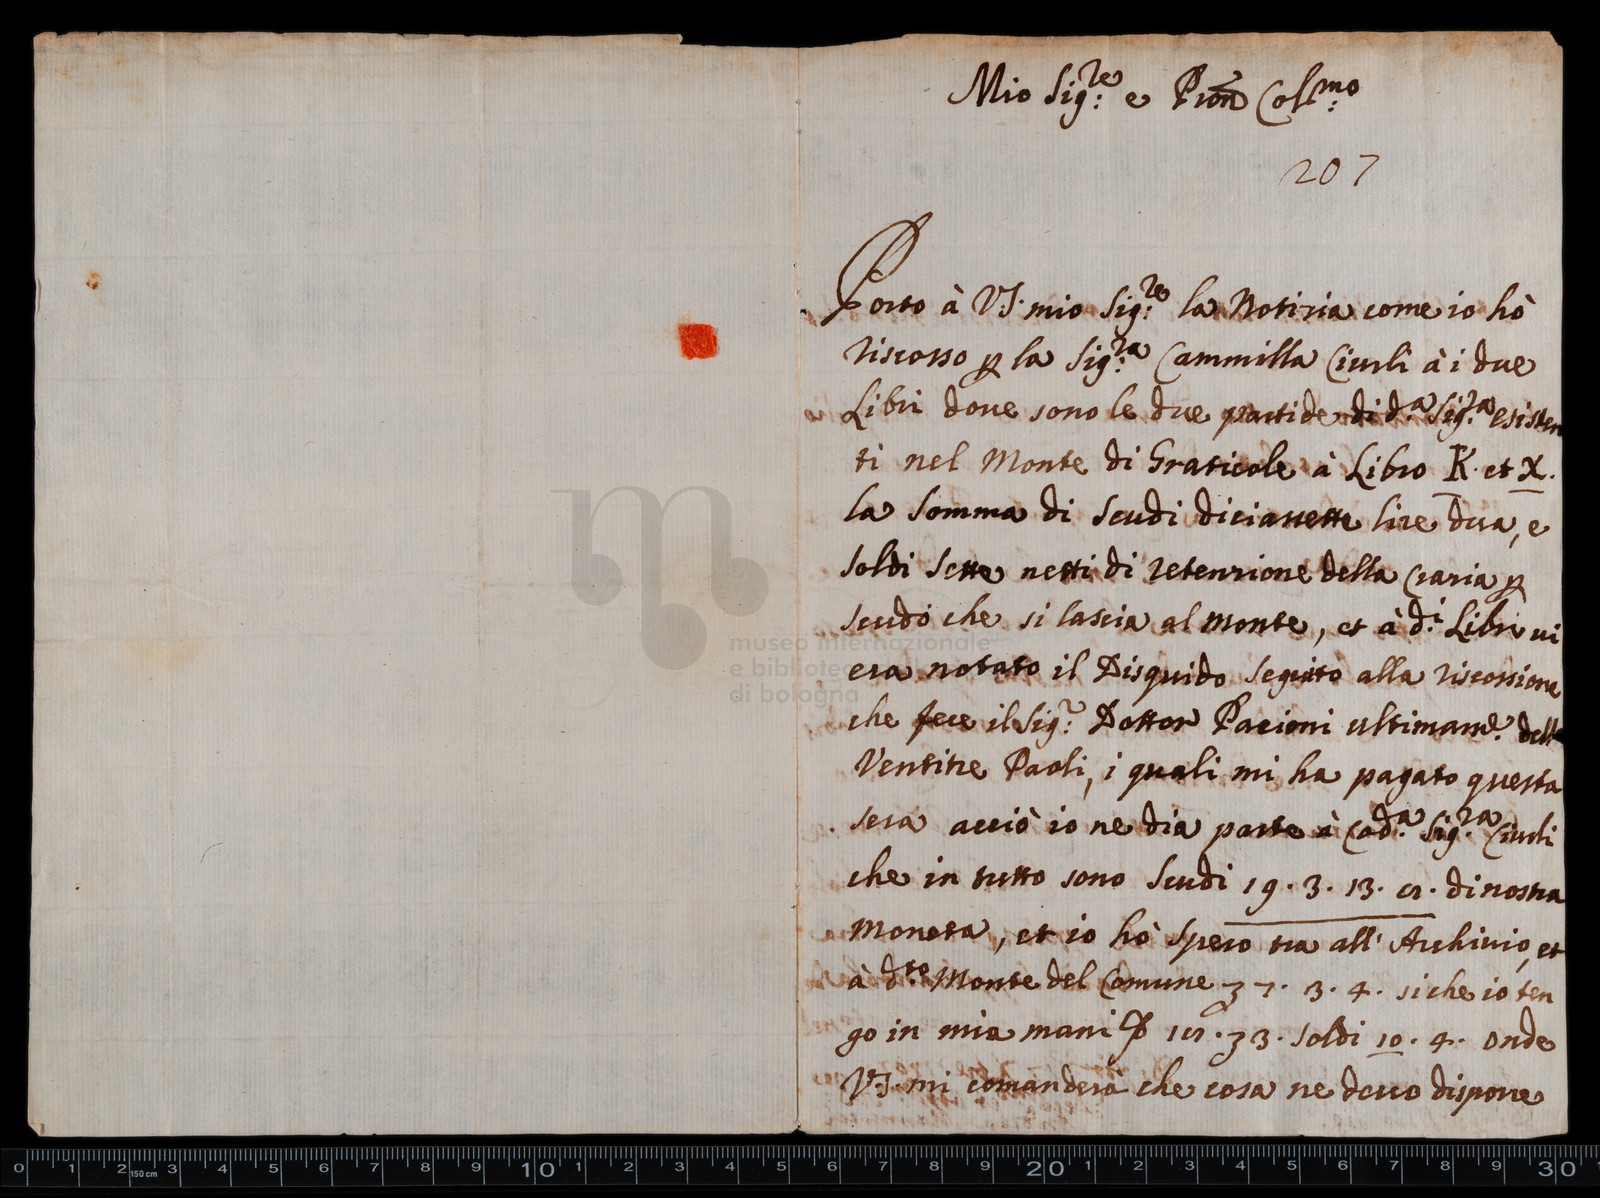 Mio Sig:re e Pron Col:mo
207
Porto à V.S. mio Sig:re la Notizia come io hò
riscosso p la Sig:ra Cammilla Ciurli à i due
Libri doue sono le due partide di d.a Sig:ra esisten
ti nel Monte di Graticole à Libro K. et X.
la Somma di Scudi diciassette lire dua, e
soldi Sette netti di retenzione della Crazia p
scudo che si lascia al Monte, et à d.i Libri ui
era notato il Disguido seguito alla riscossione
che fece il Sig.r Dottor Pacioni ultimam.e delle
Ventitre Paoli, i quali mi ha pagato questa
sera acciò io ne dia parte à Cod.a Sig.ra Ciurli
che in tutto sono Scudi 19. 3. 13. di nostra
Moneta, et io hò speso tra all' Archiuio, et
à d.to Monte del Comune 3. 4. si che io ten
go in mia mani soldi 10. 4. onde
V.S. mi comanderà che cosa ne deuo disporre
museo internazionale
e biblioteca
di bologna